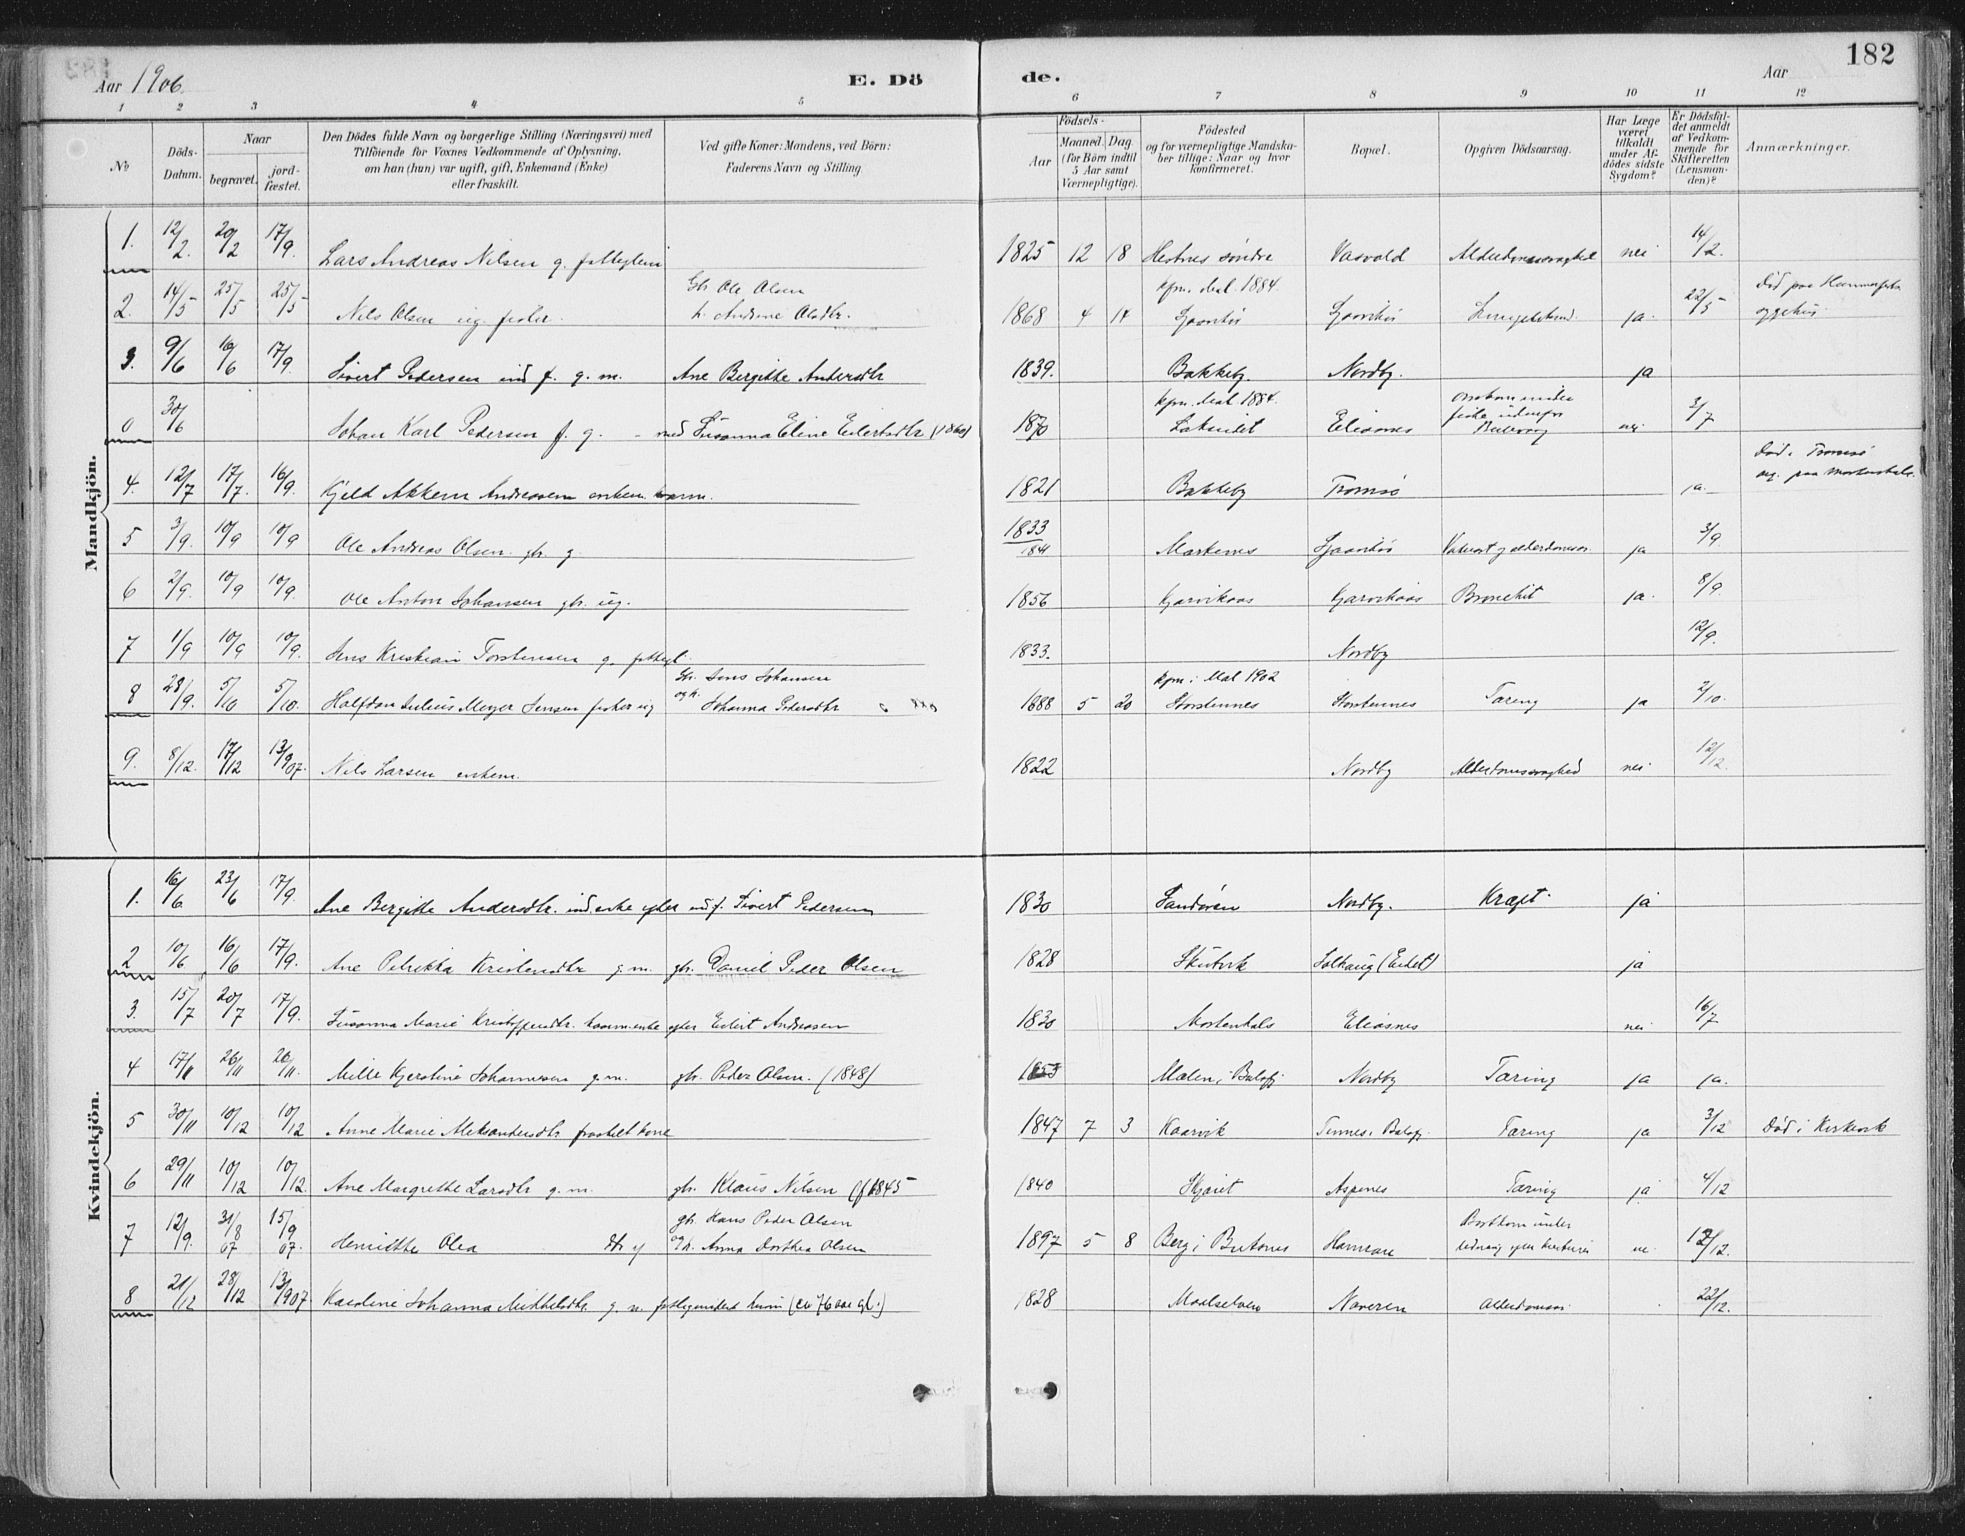 182
Aar 1906. E. Dö de. Aar
1 2 3 4 5 6 7 8 9 10 11 12
№
Döds-Datum.
Naar
begravet.
jord-fæstet.
Den Dödes fulde Navn og borgerlige Stilling (Næringsvei) med
Tilföiende for Voxnes Vedkommende af Oplysning,
om han (hun) var ugift, gift, Enkemand (Enke)
eller fraskilt.
Ved gifte Koner: Mandens, ved Börn:
Faderens Navn og Stilling.
Födsels-
Aar
Maaned. Dag
(for Börn indtil
5 Aar samt
Værnepligtige).
Födested
og for værnepligtige Mandska-
ber tillige: Naar og hvor
konfirmeret.
Bopæl.
Opgiven Dödsaarsag.
Har Læge
været
tilkaldt
under Af-
dödes sidste
Sygdom?
Er Dödsfal-
det anmeldt
af Vedkom-
mende for
Skifteretten
(Lensman-
den)?
Anmærkninger.
Mandkjön.
1. 12/2. 20/2 17/9. Lars Andreas Nilsen g. 1825 12 18 Hestnes söndre Vasvold Alderdomssvaghed nei 14/2.
2. 14/5 25/5 25/5 Nils Olsen ug. fisker. Gbr. Ole Olsen 1868 4 14 kfm. Mal. 1884. ja. 22/5
3. 9/6 16/6 17/9. Sivert Pedersen ind f. g. m. Ane Bergitte Andersdtr 1839. Bakkeby. Nordby. ja
0 30/6 Johan Karl Pedersen f. g. - med Susanna Eline Eilertsdtr (1860) 1870 kfm. Mal. 1884. Eliasnes nei 3/7
4. 12/7 17/7. 16/9. Kjeld Akkern Andreassen enkem. 1821 Bakkeby Tromsö ja. Död i Tromsö
5 3/9. 10/9 10/9 Ole Andreas Olsen gbr. g 1833 1841 ja 3/9
6 2/9. 10/9 10/9. Ole Anton Johansen gbr. ug. 1856 Kjarvikaas Kjarvikaas Bronchit ja. 8/9
7 1/9 10/9 10/9. Jens Kristian Torstensen g. 1833. Nordby 12/9.
8 28/9. 5/10 5/10. Halfdan Julius Meyer Jensen fisker ug Gbr. Jens Johansen
og h. Johanna Pedersdtr 1888 5 20 kfm. i Mal 1902 Storstennes Storstennes Tæring ja 2/10.
9. 8/12. 17/12 13/9 07. Nils Larsen enkem. 1822 Nordby Alderdomssvaghed nei 12/12.
Kvindekjön.
1. 16/6 23/6 17/9. Ane Bergitte Andersdtr. ind. enke efter ind f. Sivert Pedersen 1830 Sandören Nordby. Kræft. ja
2 10/6 16/6 17/9. Ane Petrikka Kristensdtr g. m. gbr. Daniel Peder Olsen 1828 Skutvik ja
3. 15/7 20/7 17/9. Susanna Marie Kristoffersdtr. efter Eilert Andreasen 1830 Mortenhals Eliasnes nei 16/7
4 17/11 26/11 26/11. Mille Kjerstine Johannesen g. m. gbr. Peder Olsen. (1848) 1853 Malen i Balsfj Nordby Tæring ja ja.
5 30/11 10/12 10/12 Anne Marie Aleksandersdtr fraskilt kone 1847 7 3 Kaarvik Tennes i Balsfj. Tæring ja 3/12 Död i Kirkevik
6 29/11 10/12 10/12. Ane Margrethe Larsdtr g. m. gbr. Klaus Nilsen (f 1845 1840 Skjæret Aspenes Tæring ja 4/12
7 12/9. 31/8 07 15/9 07. Henriette Olea dtr af gbr. Hans Peder Olsen
og h. Anna Dorthea Olsen 1897 5 8 Berg i Butones 12/12.
8 21/12 28/12 13/9 07. Karoline Johanna Mikkelsdtr. g. m. (ca 76 aar gl.) 1828 Maalselven Naveren Alderdomssv. 22/12.